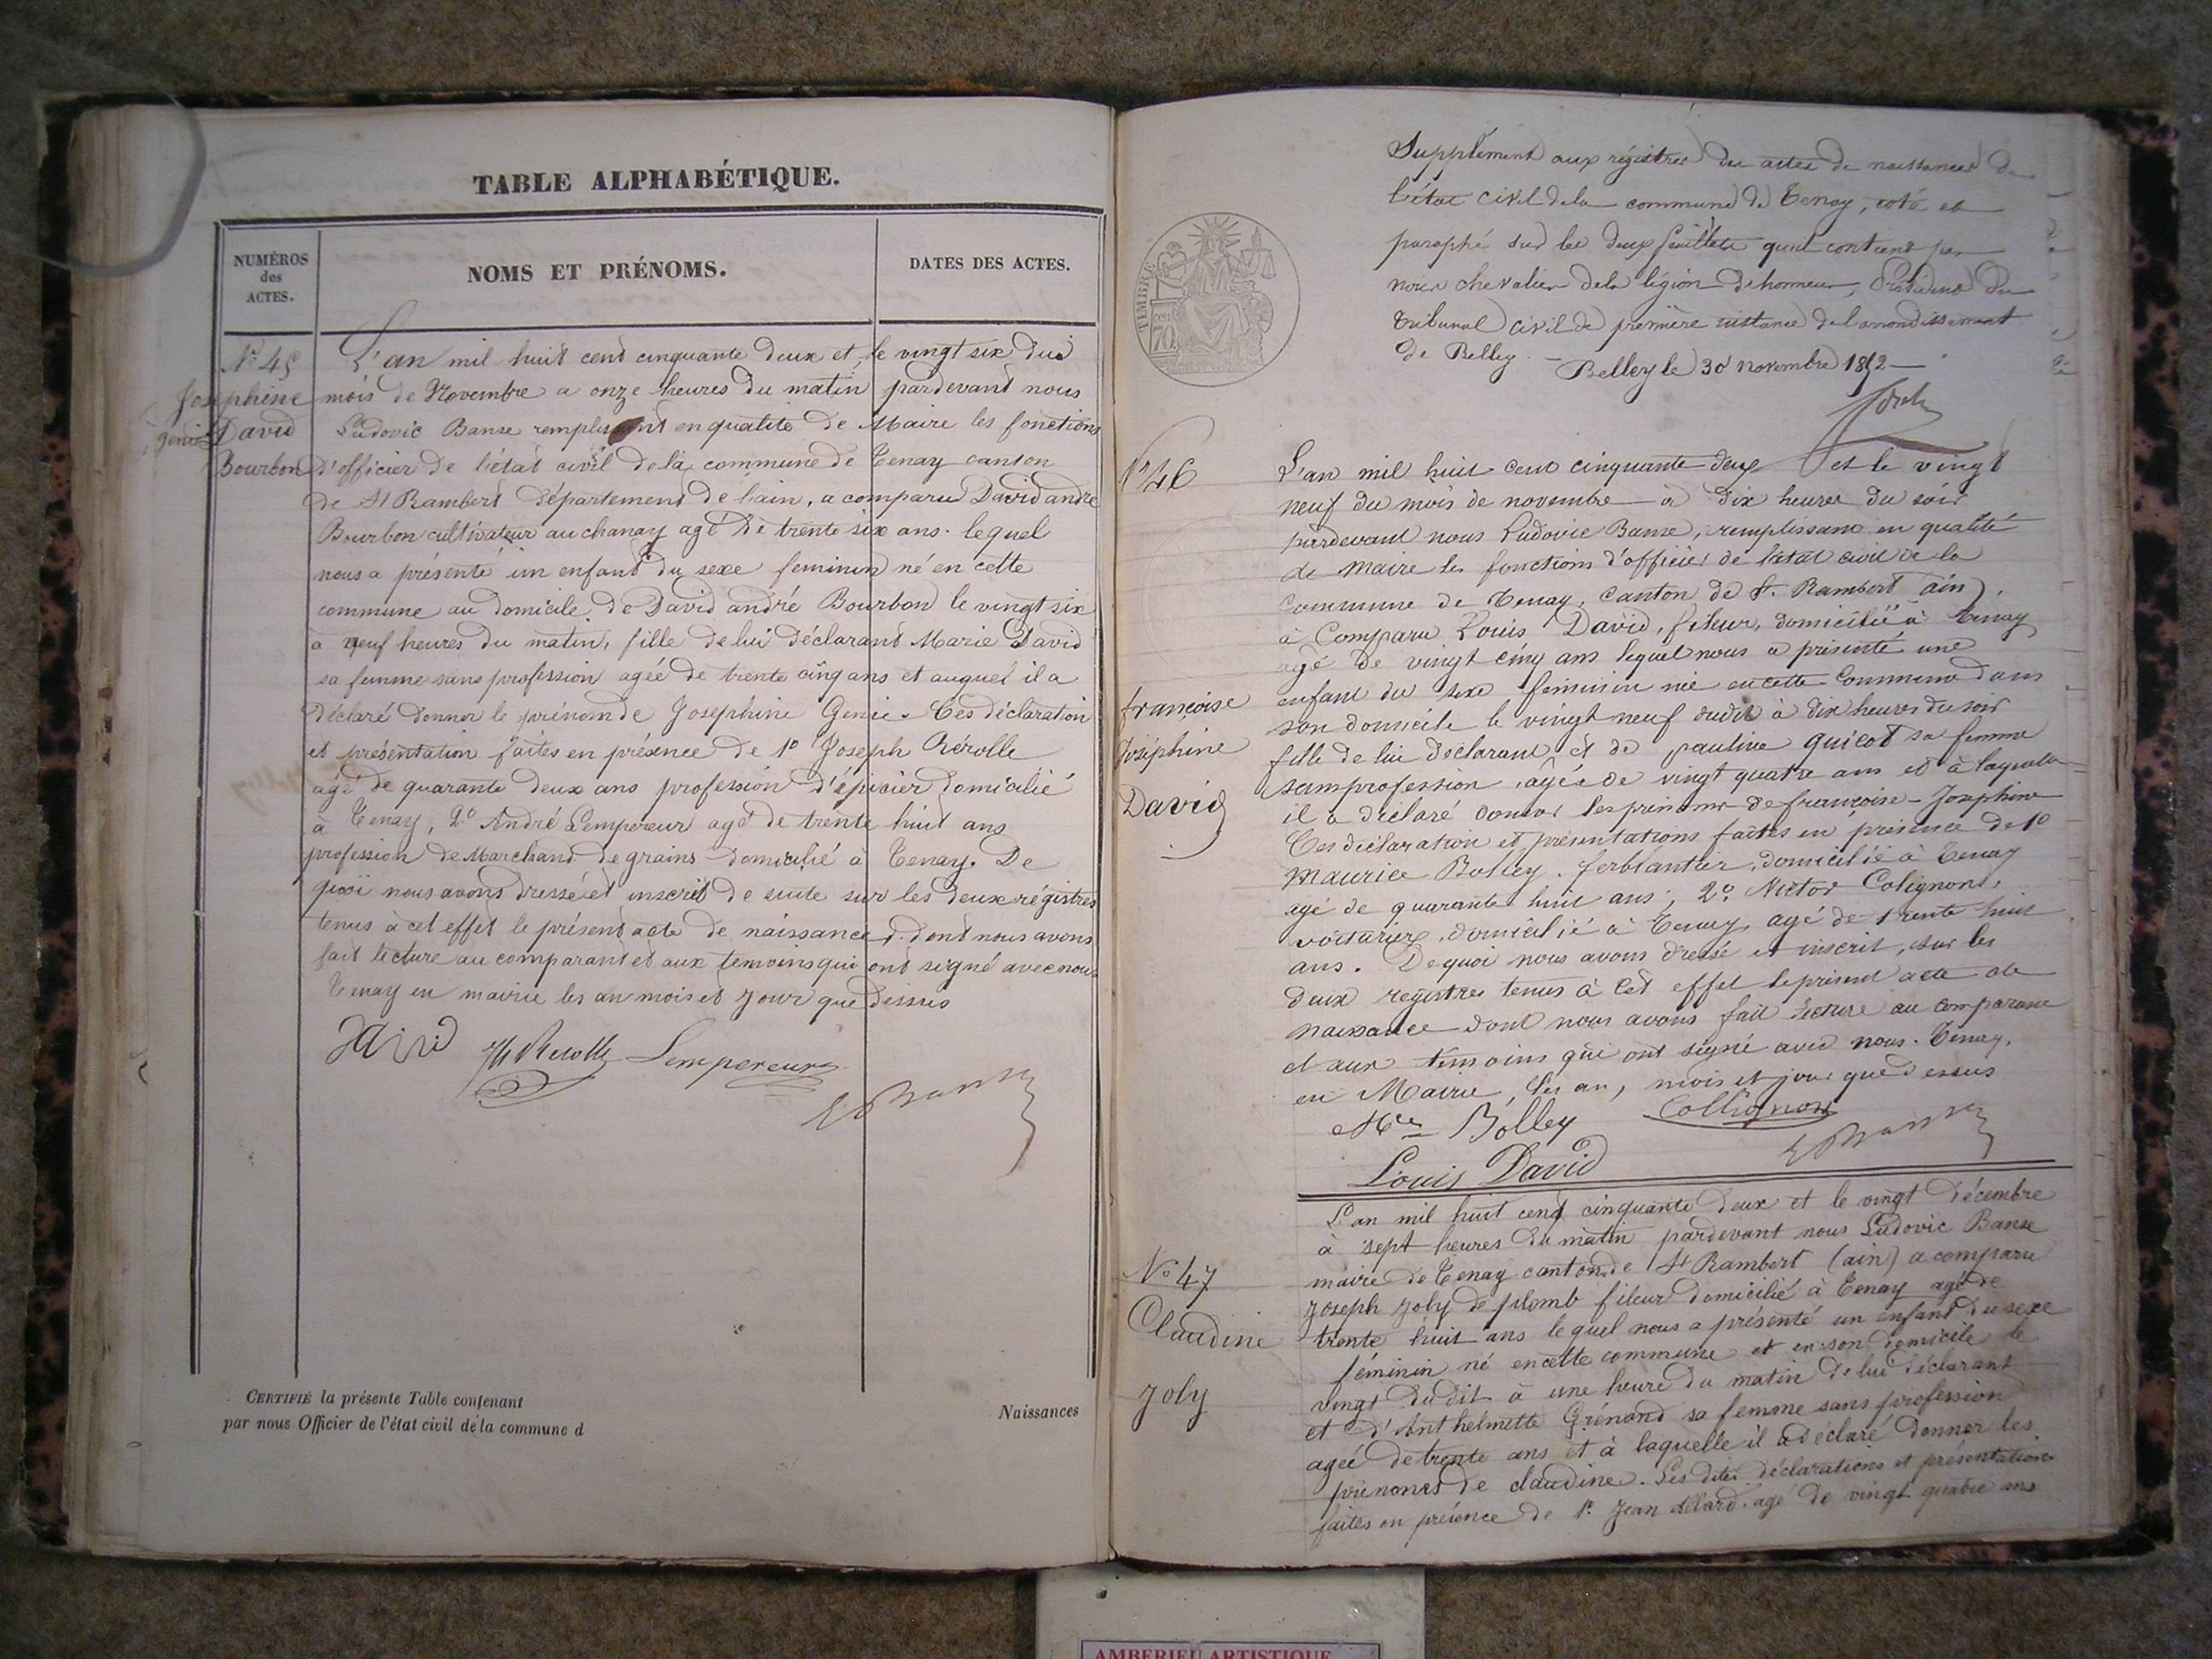 TABLE ALPHABÉTIQUE.
NUMÉROS
des
ACTES.
NOMS ET PRÉNOMS.
DATES DES ACTES.
N° 45
Josephine
Genie David
Bourbon
L'an mil huit cent cinquante deux et le vingt six du
mois de Novembre a onze heures du matin pardevant nous
Ludovic Banse remplissant en qualité de Maire les fonctions
d'officier de l'état civil de la commune de Tenay canton
de St Rambert département de l'ain, a comparu David andré
Bourbon cultivateur au chanay agé de trente six ans. lequel
nous a présenté un enfant du sexe feminin né en cette
commune au domicile de David andré Bourbon le vingt six
a neuf heures du matin, fille de lui déclarant Marie David
sa femme sans profession agée de trente cinq ans et auquel il a
déclaré donner le prénom de Josephine Genie. Ces déclaration
et présentation faites en présence de 1° Joseph Rérolle
agé de quarante deux ans profession d'épicier domicilié
à Tenay, 2° André Lempereur agé de trente huit ans
profession de Marchand de grains domicilié à Tenay. De
quoi nous avons dressé et inscrit de suite sur les deux régistres
tenus à cet effet le présent acte de naissance dont nous avons
fait lecture au comparant et aux temoins qui ont signé avec nous
Tenay en mairie les an mois et jour que dessus
David Jh Rerolle Lempereur
L Banse
CERTIFIÉ la présente Table contenant
Naissances
par nous Officier de l'état civil de la commune d
Supplément aux régistres des actes de naissances de
l'état civil de la commune de Tenay, coté et
paraphé sur les deux feuillets qu'il contient par
nous chevalier de la légion d'honneur, Président du
tribunal civil de première instance de l'arrondissement
de Belley. — Belley le 30 novembre 1852 —
TIMBRE
70
N° 46
françoise
Joséphine
David
L'an mil huit cent cinquante deux et le vingt
neuf du mois de novembre à dix heures du soir
pardevant nous Ludovic Banse, remplissant en qualité
de Maire les fonctions d'officier de l'état civil de la
Commune de Tenay, Canton de St. Rambert ain),
à Comparu Louis David, fileur, domicilié à Tenay
agé de vingt cinq ans lequel nous a présenté une
enfant du sexe feminin née en cette Commune dans
son domicile le vingt neuf dudit à dix heures du soir
fille de lui déclarant et de pauline guicot sa femme
sans profession, agée de vingt quatre ans et à laquelle
il a déclaré donner les prénoms de françoise-Josephine
Ces déclaration et présentations faites en présence de 1°
Maurice Bolley. ferblantier, domicilié à Tenay
agé de quarante huit ans; 2°. Victor Colignont,
voiturier, domicilié à Tenay, agé de trente huit
ans. De quoi nous avons dressé et inscrit, sur les
deux registres tenus à cet effet le présent acte de
naissance dont nous avons fait lecture au comparant
et aux témoins qui ont signé avec nous. Tenay,
en Mairie, les an, mois et jour que dessus
Mce Bolley Collignon
Louis David L Banse
N° 47
Claudine
Joly
L'an mil huit cent cinquante deux et le vingt décembre
à sept heures du matin pardevant nous Ludovic Banse
maire de Tenay canton de St Rambert (ain) a comparu
Joseph Joly de plomb fileur domicilié à Tenay agé de
trente huit ans lequel nous a présenté un enfant du sexe
féminin né en cette commune et en son domicile le
vingt dudit à une heure du matin de lui déclarant
et d'Anthelmette Grénand sa femme sans profession
agée de trente ans et à laquelle il a déclaré donner les
prénoms de claudine. Les dites déclarations et présentations
faites en présence de 1° Jean allard agé de vingt quatre ans
AMBERIEU ARTISTIQUE